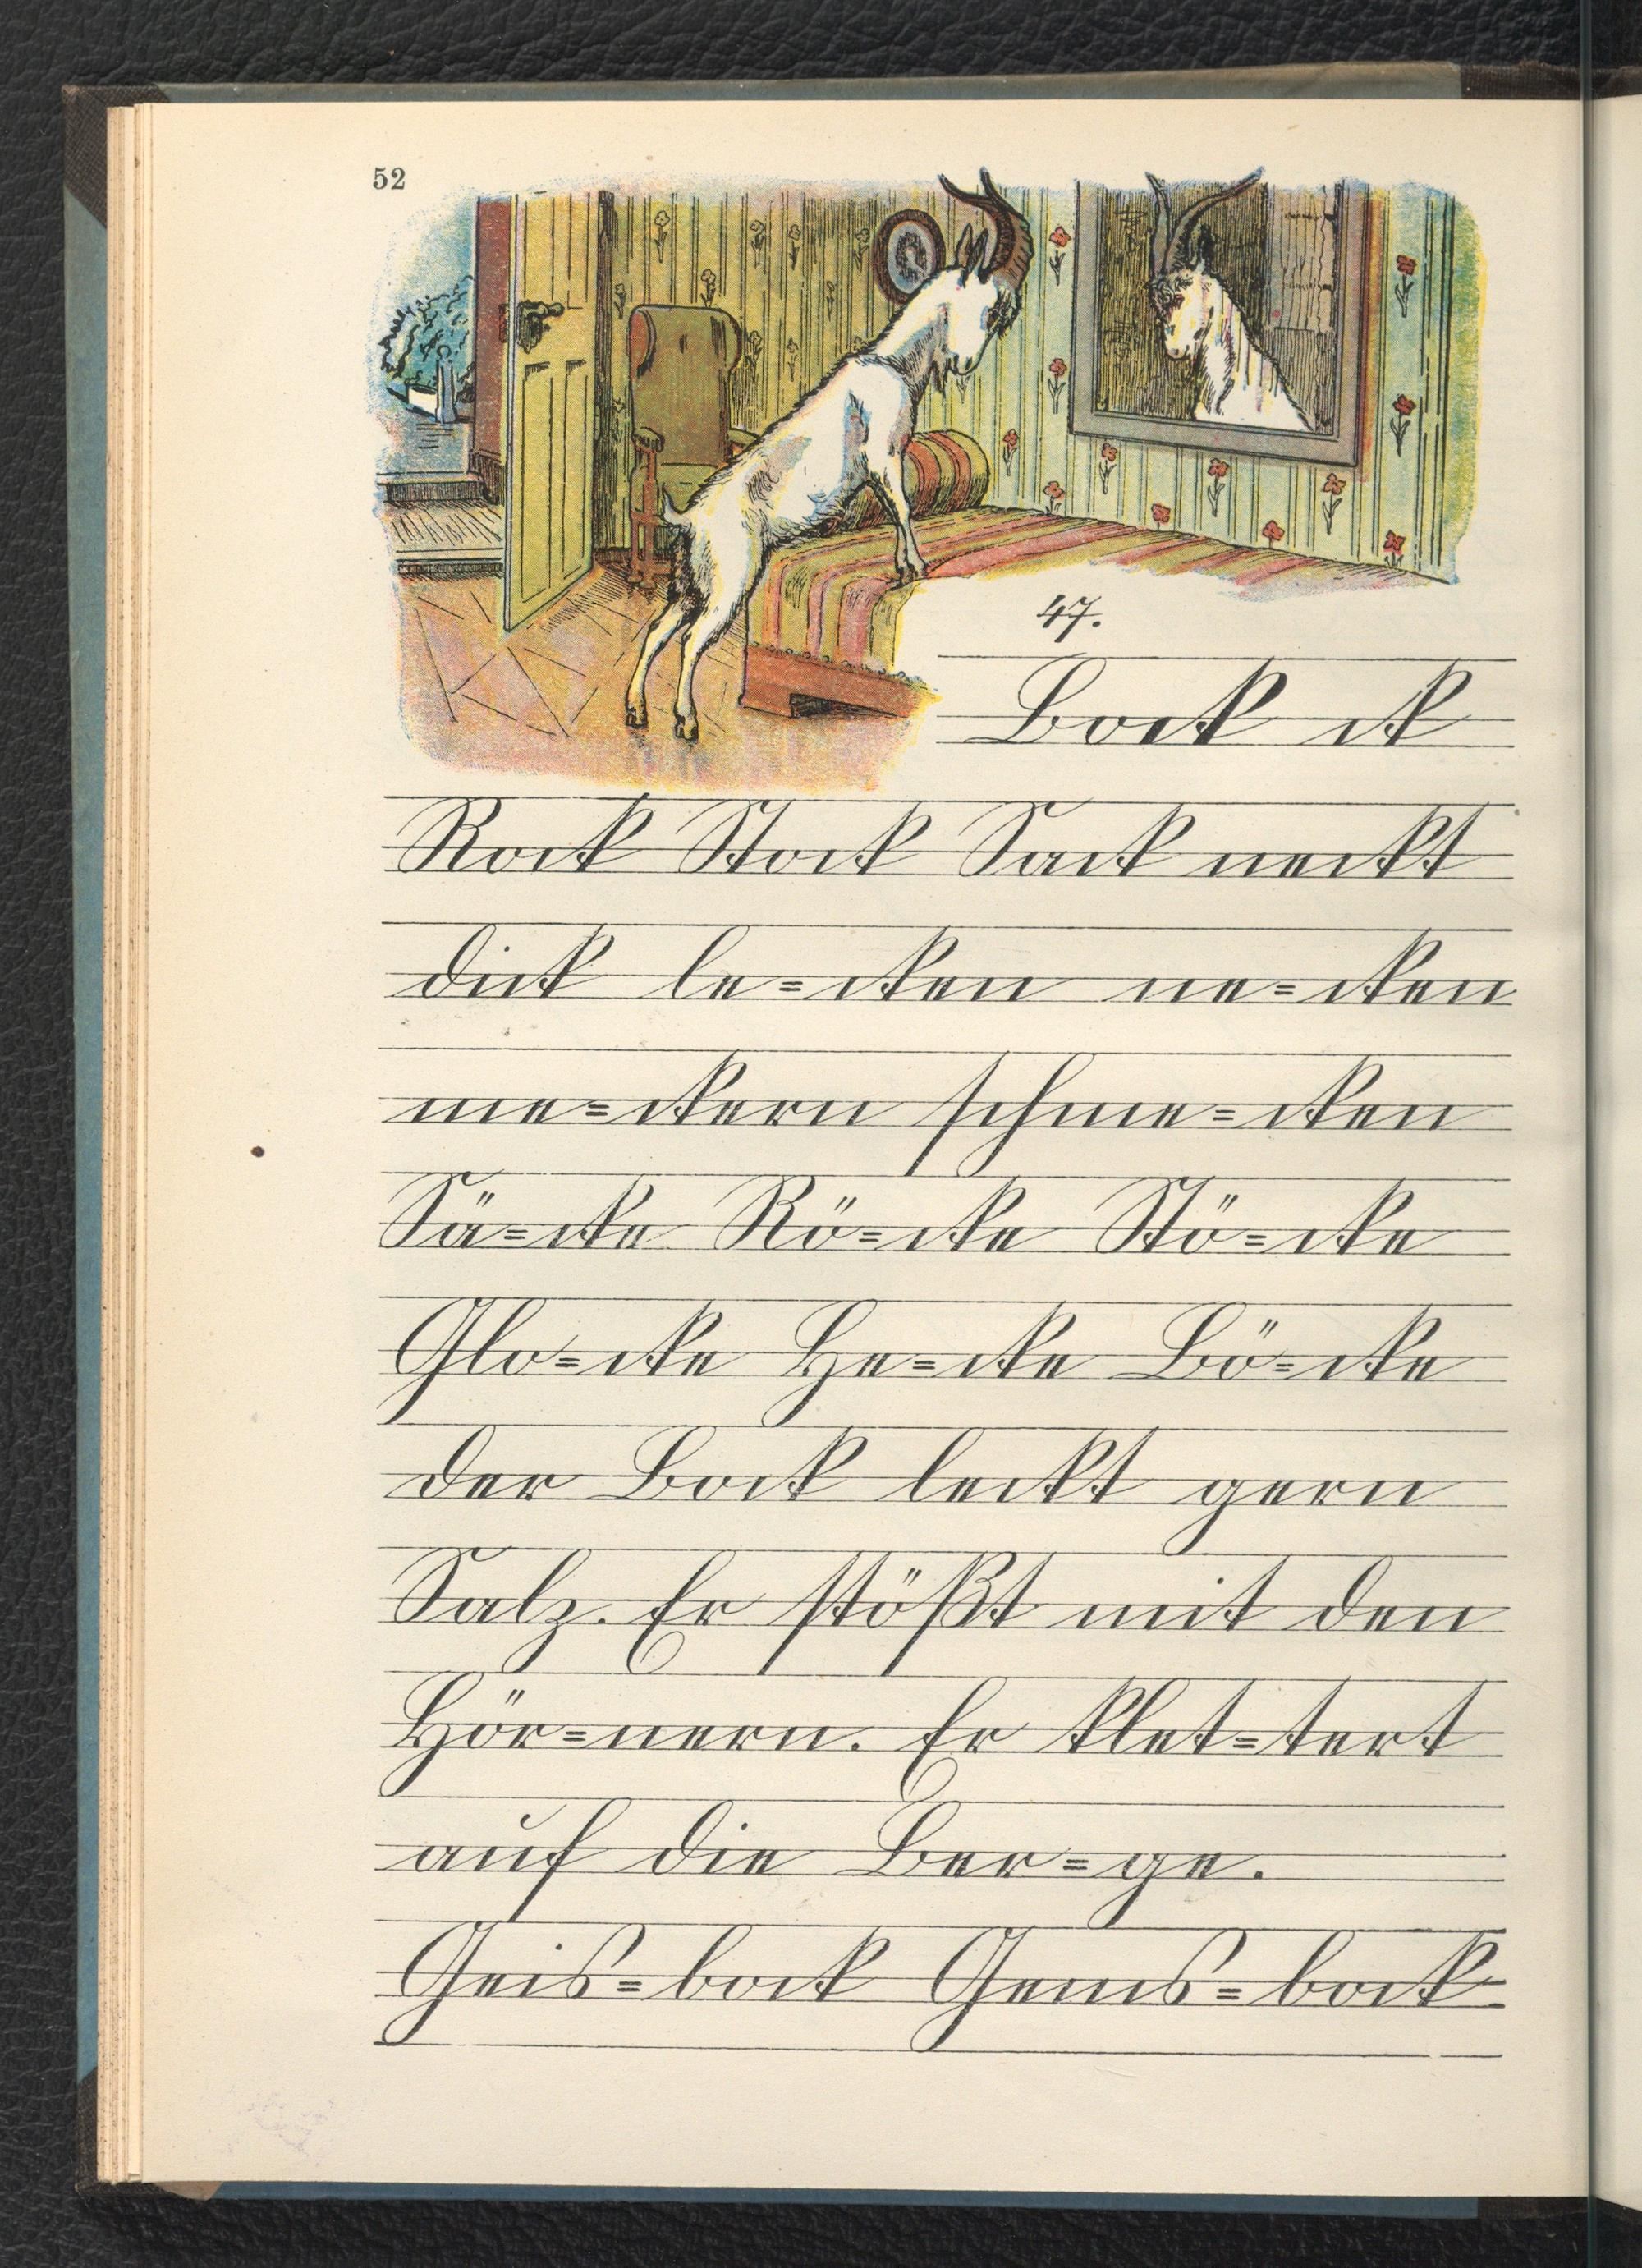 52
47.
Bock ck
Rock Stock Sack neckt
dick le=cken ne=cken
me=ckern schme=cken
Sä=cke Rö=cke Stö=cke
Glo=cke He=cke Bö=cke
der Bock leckt gern
Salz. Er stößt mit den
Hör=nern. Er klet=tert
auf die Ber=ge.
Geis=bock Gems=bock